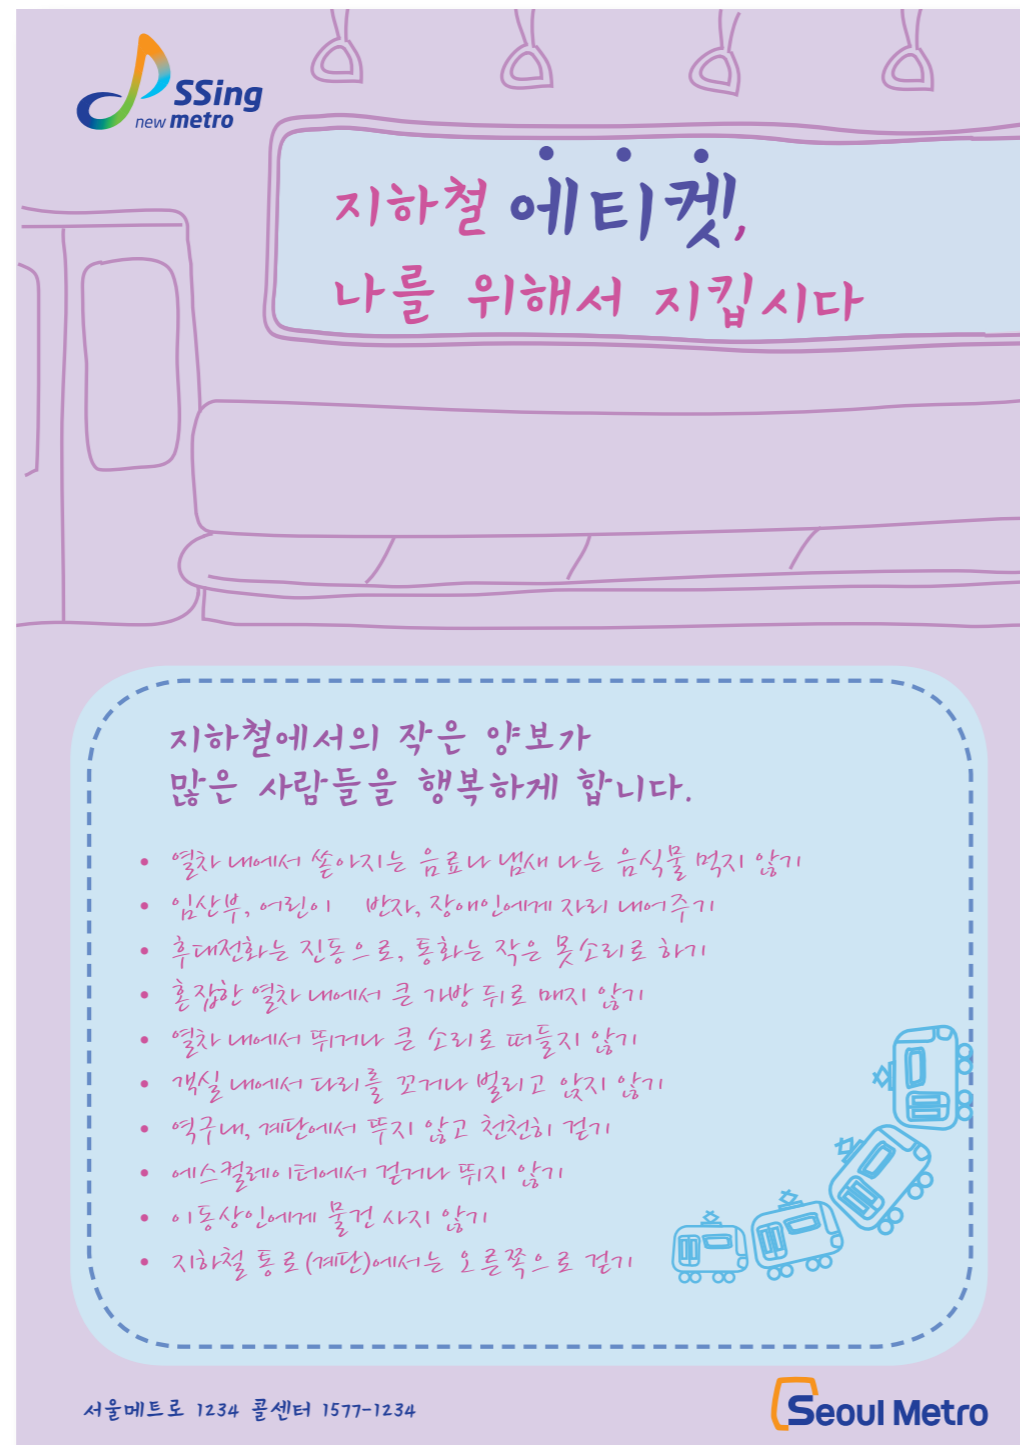 SSing
new metro
지하철 에티켓,
나를 위해서 지킵시다
지하철에서의 작은 양보가
많은 사람들을 행복하게 합니다.
• 열차 내에서 쏟아지는 음료나 냄새 나는 음식물 먹지 않기
• 임산부, 어린이 반자, 장애인에게 자리 내어주기
• 휴대전화는 진동으로, 통화는 작은 목소리로 하기
• 혼잡한 열차 내에서 큰 가방 뒤로 매지 않기
• 열차 내에서 뛰거나 큰 소리로 떠들지 않기
• 객실 내에서 다리를 꼬거나 벌리고 앉지 않기
• 역구내, 계단에서 뚜지 않고 천천히 걷기
• 에스컬레이터에서 걷거나 뛰지 않기
• 이동상인에게 물건 사지 않기
• 지하철 통로(계단)에서는 오른쪽으로 걷기
서울메트로 1234 콜센터 1577-1234
Seoul Metro